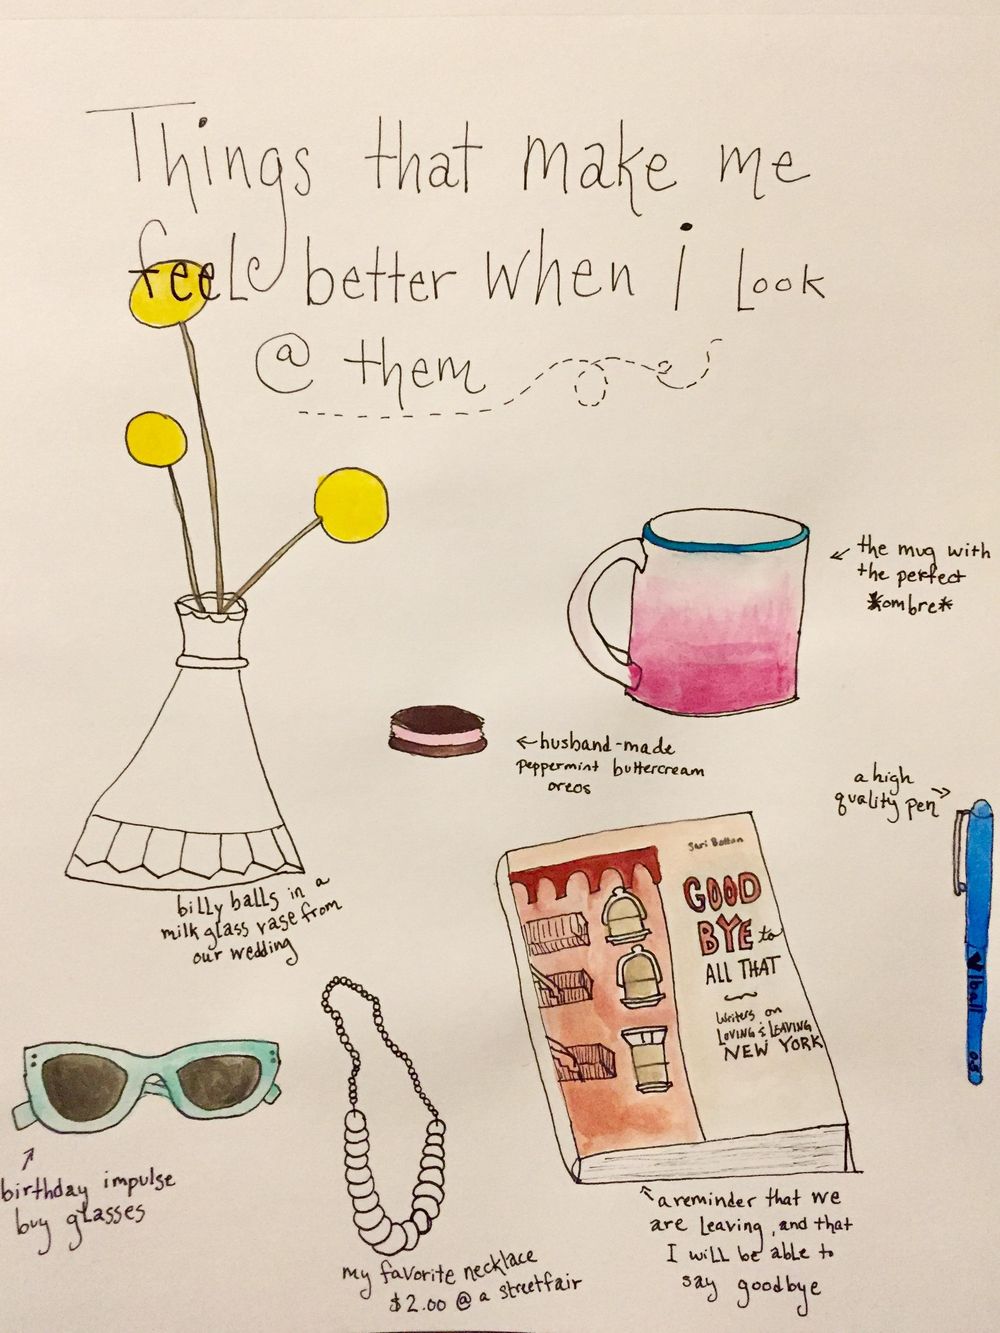 Things that make me
feel better when i look
@ them
the mug with
the perfect
*ombre*
husband-made
peppermint buttercream
oreos
a high
quality pen
billy balls in a
milk glass vase from
our wedding
Sari Botton
GOOD
BYE to
ALL THAT
Writers on
LOVING & LEAVING
NEW YORK
ball
0.5
birthday impulse
buy glasses
my favorite necklace
$2.00 @ a streetfair
a reminder that we
are leaving, and that
I will be able to
say goodbye